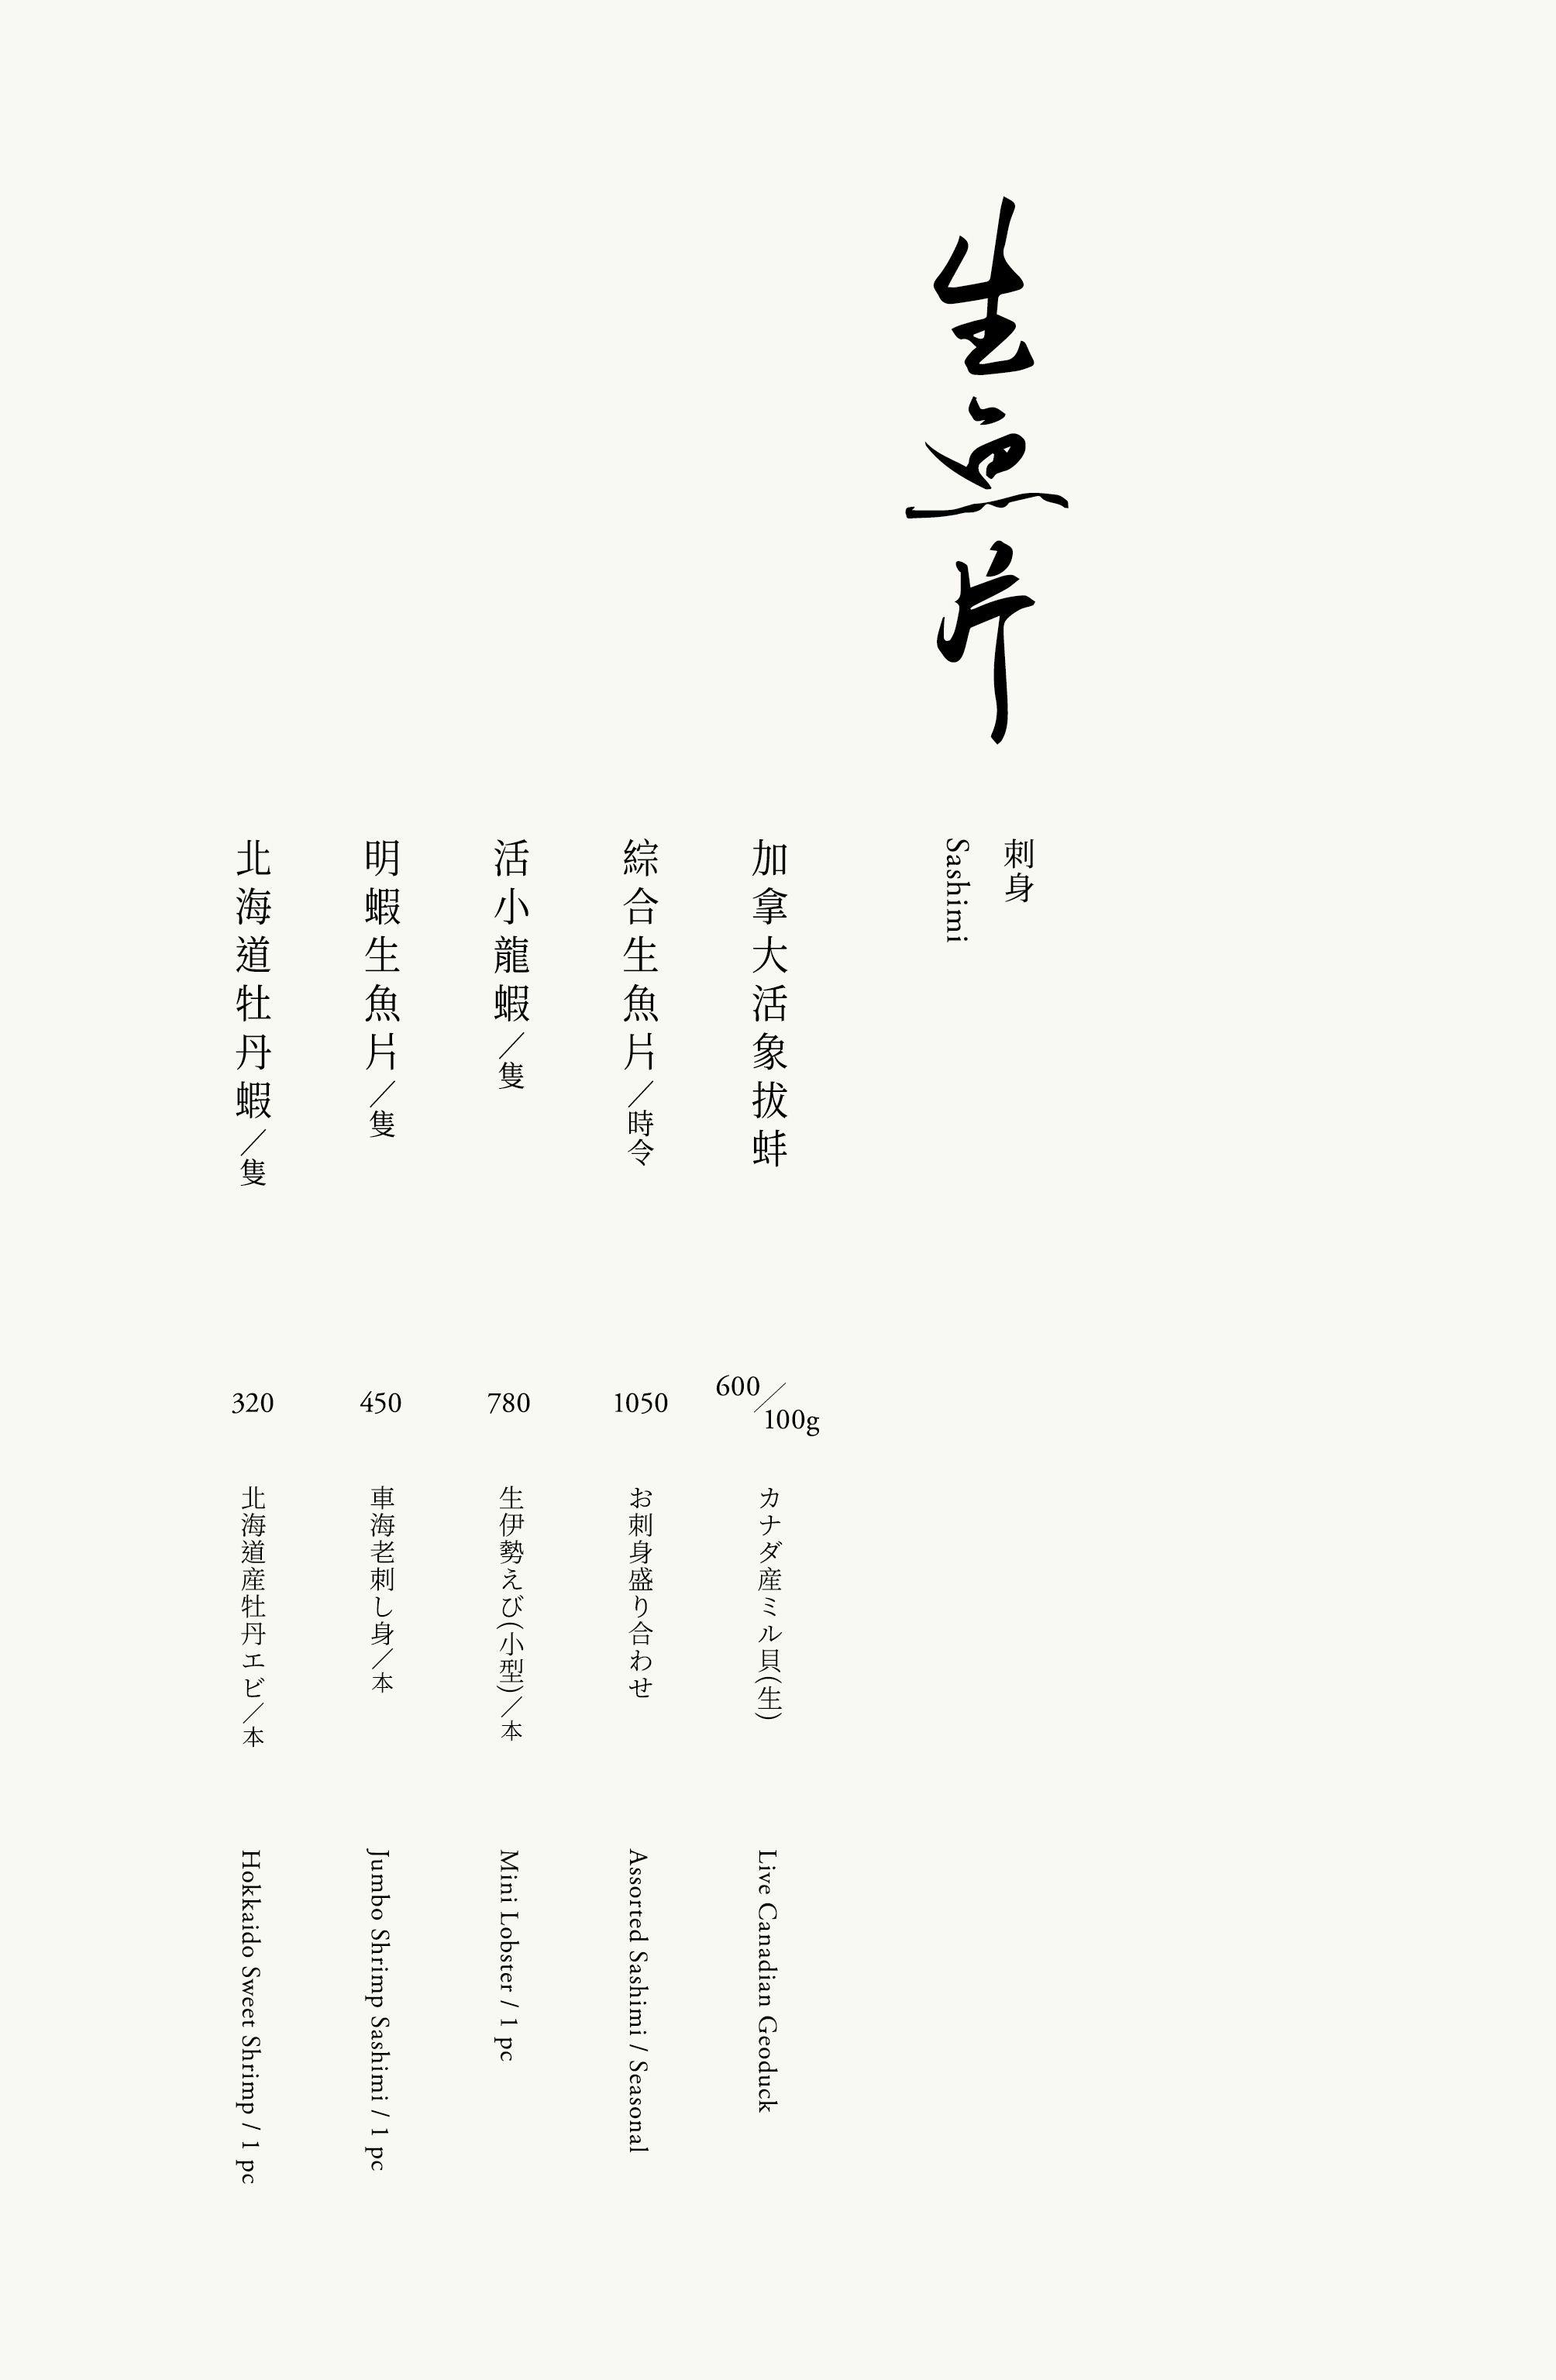 生魚片
刺身
Sashimi
加拿大活象拔蚌
600／100g
カナダ産ミル貝(生)
Live Canadian Geoduck
綜合生魚片／時令
1050
お刺身盛り合わせ
Assorted Sashimi / Seasonal
活小龍蝦／隻
780
生伊勢えび(小型)／本
Mini Lobster / 1 pc
明蝦生魚片／隻
450
車海老刺し身／本
Jumbo Shrimp Sashimi / 1 pc
北海道牡丹蝦／隻
320
北海道産牡丹エビ／本
Hokkaido Sweet Shrimp / 1 pc